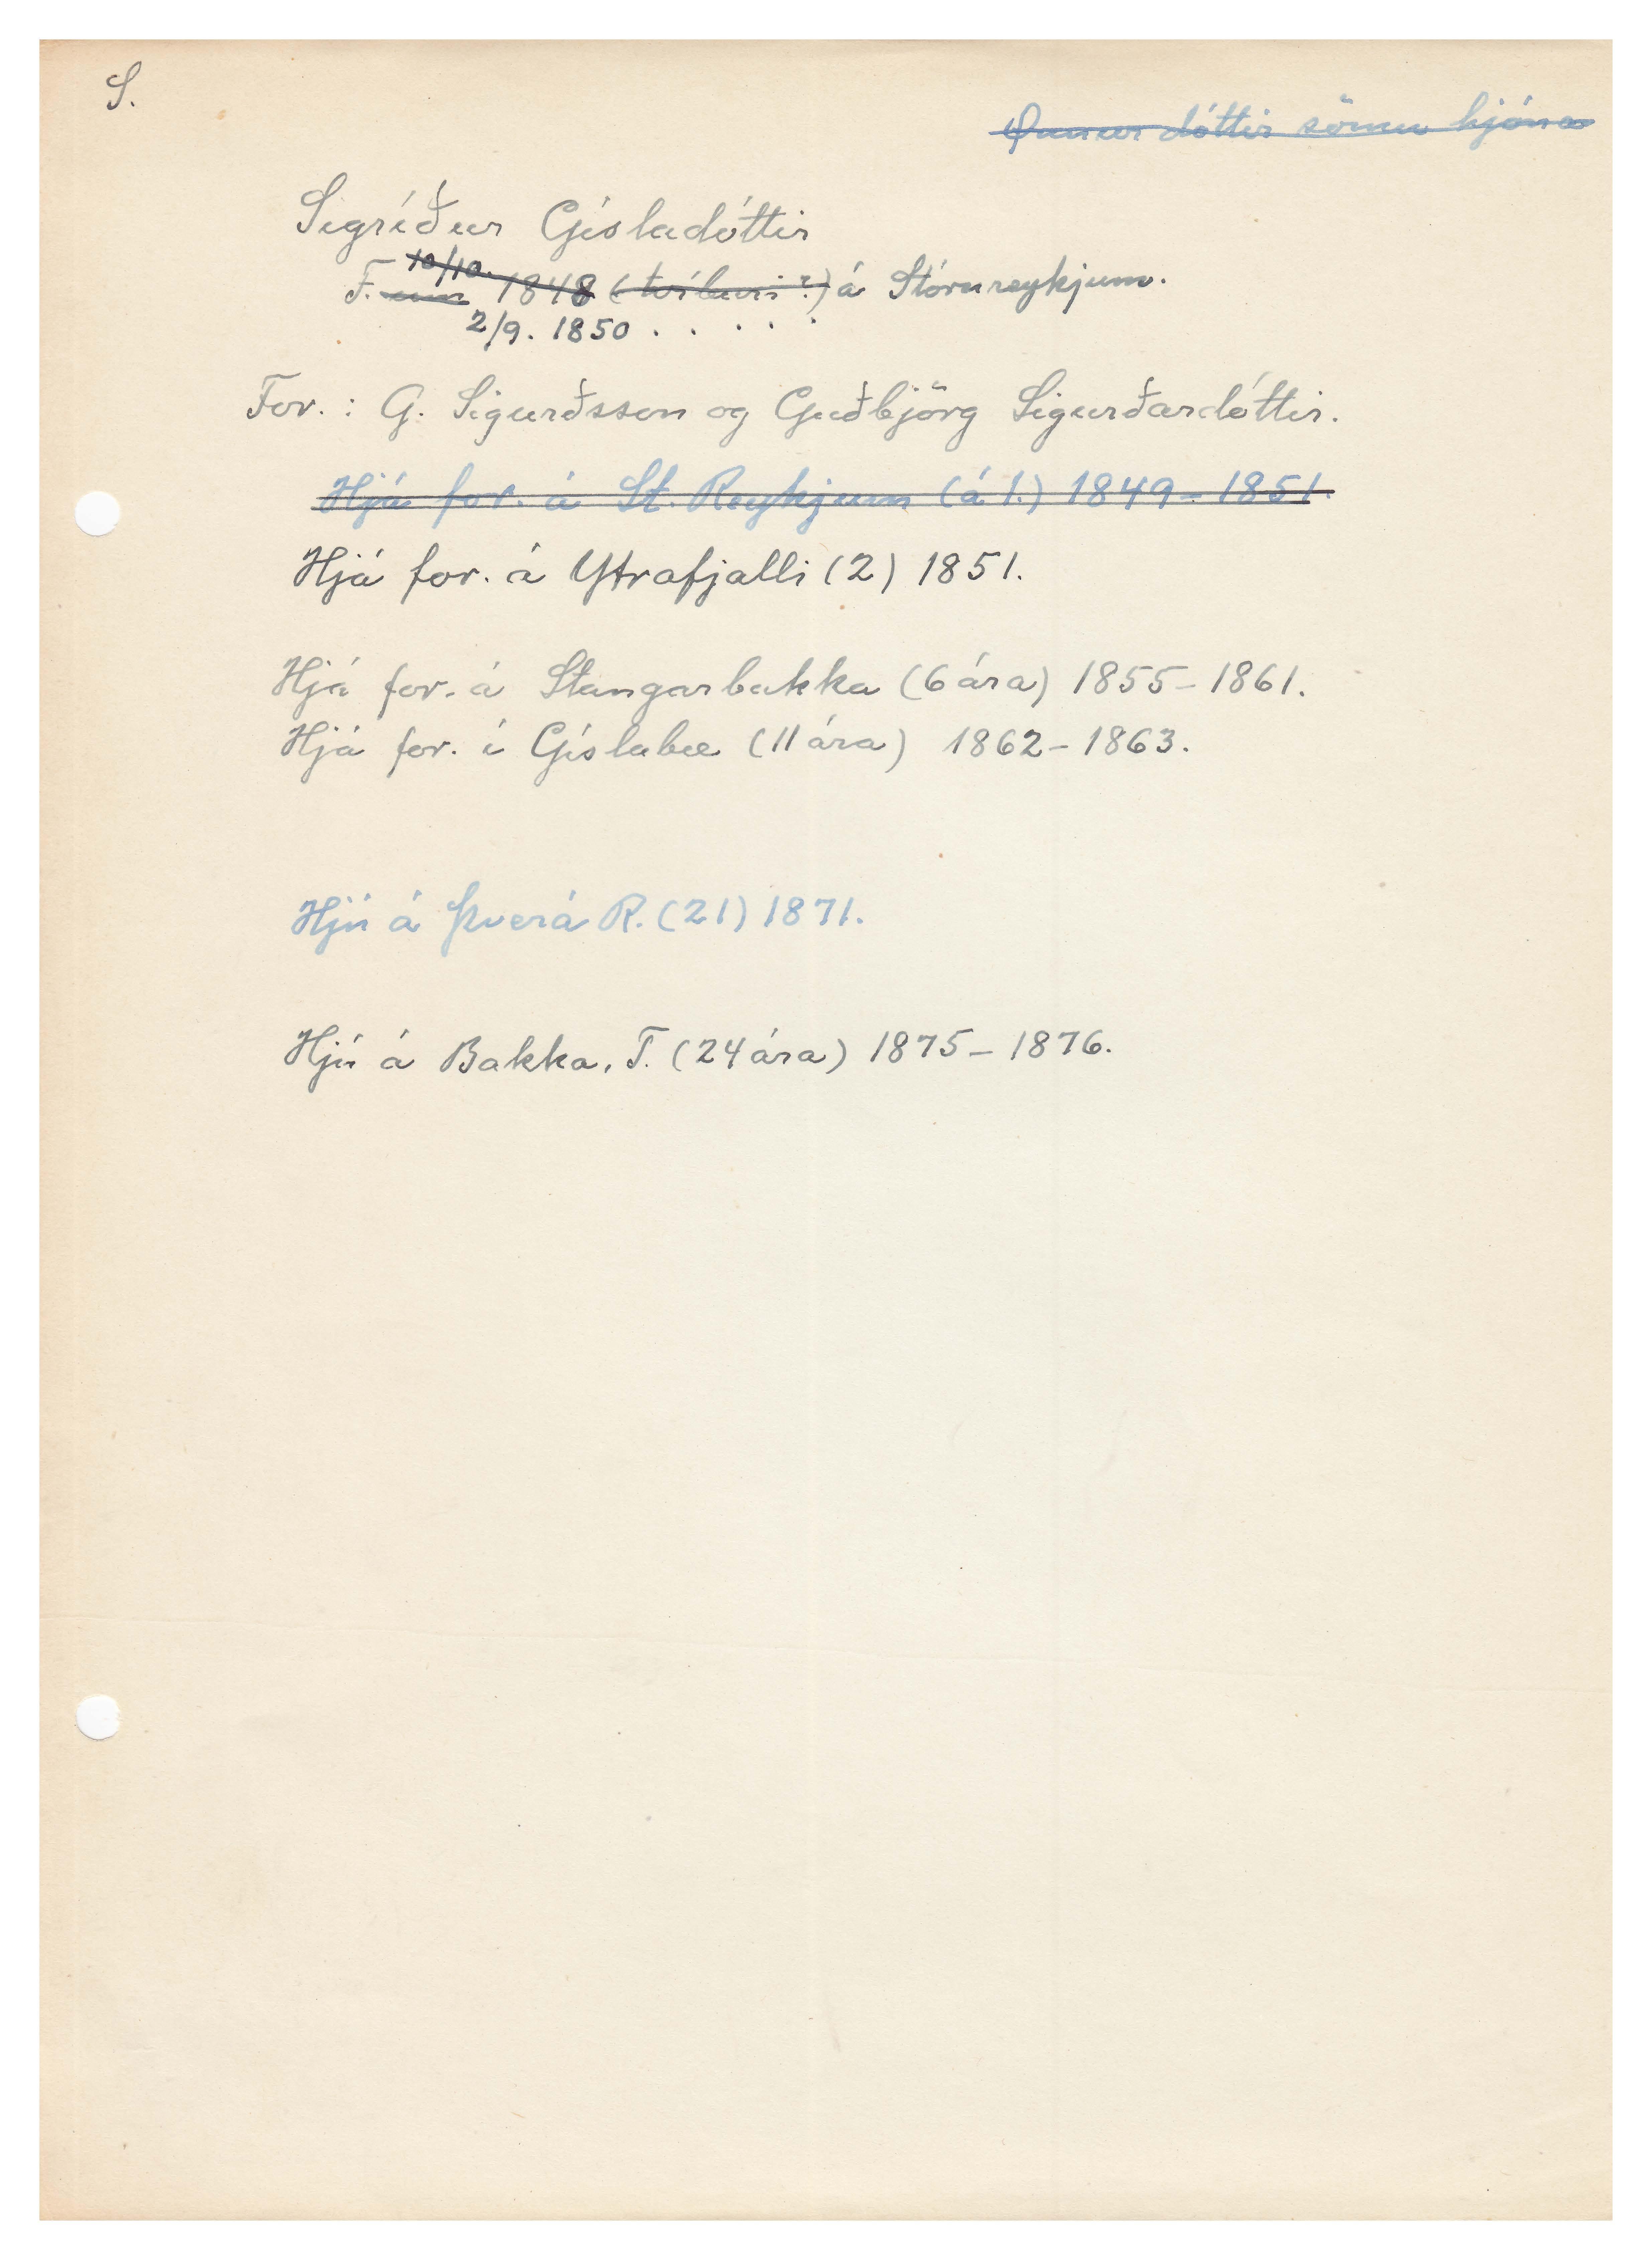 S.
Önnur dóttir sömu hjóna
Sigríður Gísladóttir
10/10.
F. um 1848 (tvíburi?) á Stórureykjum.
2/9. 1850 . . . . .
For.: G. Sigurðsson og Guðbjörg Sigurðardóttir.
Hjá for. á St. Reykjum (á 1.) 1849-1851.
Hjá for. á Ytrafjalli (2) 1851.
Hjá for. á Stangarbakka (6 ára) 1855-1861.
Hjá for. í Gíslabæ (11 ára) 1862-1863.
Hjú á Þverá R. (21) 1871.
Hjú á Bakka, T. (24 ára) 1875-1876.